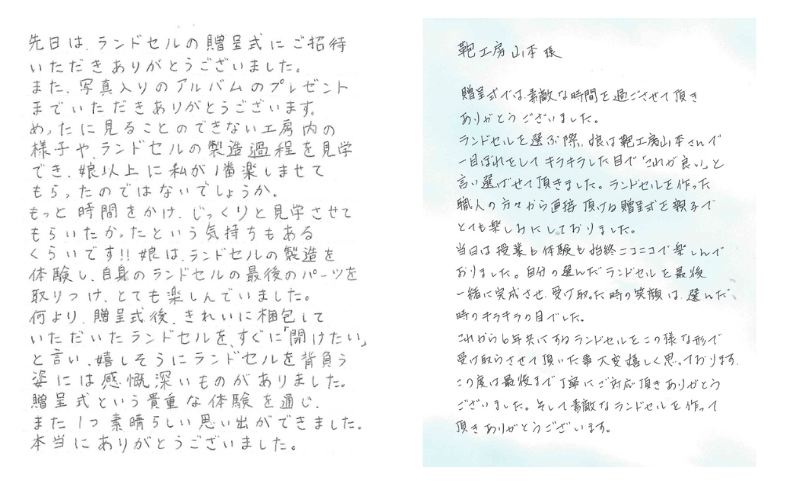 先日は、ランドセルの贈呈式にご招待
いただきありがとうございました。
また、写真入りのアルバムのプレゼント
までいただきありがとうございます。
めったに見ることのできない工房内の
様子や、ランドセルの製造過程を見学
でき、娘以上に私が1番楽しませて
もらったのではないでしょうか。
もっと時間をかけ、じっくりと見学させて
もらいたかったという気持ちもある
くらいです!!娘は、ランドセルの製造を
体験し、自身のランドセルの最後のパーツを
取りつけ、とても楽しんでいました。
何より、贈呈式後、きれいに梱包して
いただいたランドセルを、すぐに「開けたい」
と言い、嬉しそうにランドセルを背負う
姿には感慨深いものがありました。
贈呈式という貴重な体験を通じ、
また1つ素晴らしい思い出ができました。
本当にありがとうございました。
鞄工房山本様
贈呈式では素敵な時間を過ごさせて頂き
ありがとうございました。
ランドセルを選ぶ際、娘は鞄工房山本さんで
一目ぼれをしてキラキラした目で「これが良い」と
言い選ばせて頂きました。ランドセルを作った
職人の方々から直接頂ける贈呈式を親子で
とても楽しみにしておりました。
当日は授業も体験も始終ニコニコで楽しんで
おりました。自分の選んだランドセルを最後
一緒に完成させ、受け取った時の笑顔は、選んだ
時のキラキラの目でした。
これから6年共にするランドセルをこの様な形で
受け取らせて頂いた事大変嬉しく思っております。
この度は最後まで丁寧にご対応頂きありがとう
ございました。そして素敵なランドセルを作って
頂きありがとうございます。